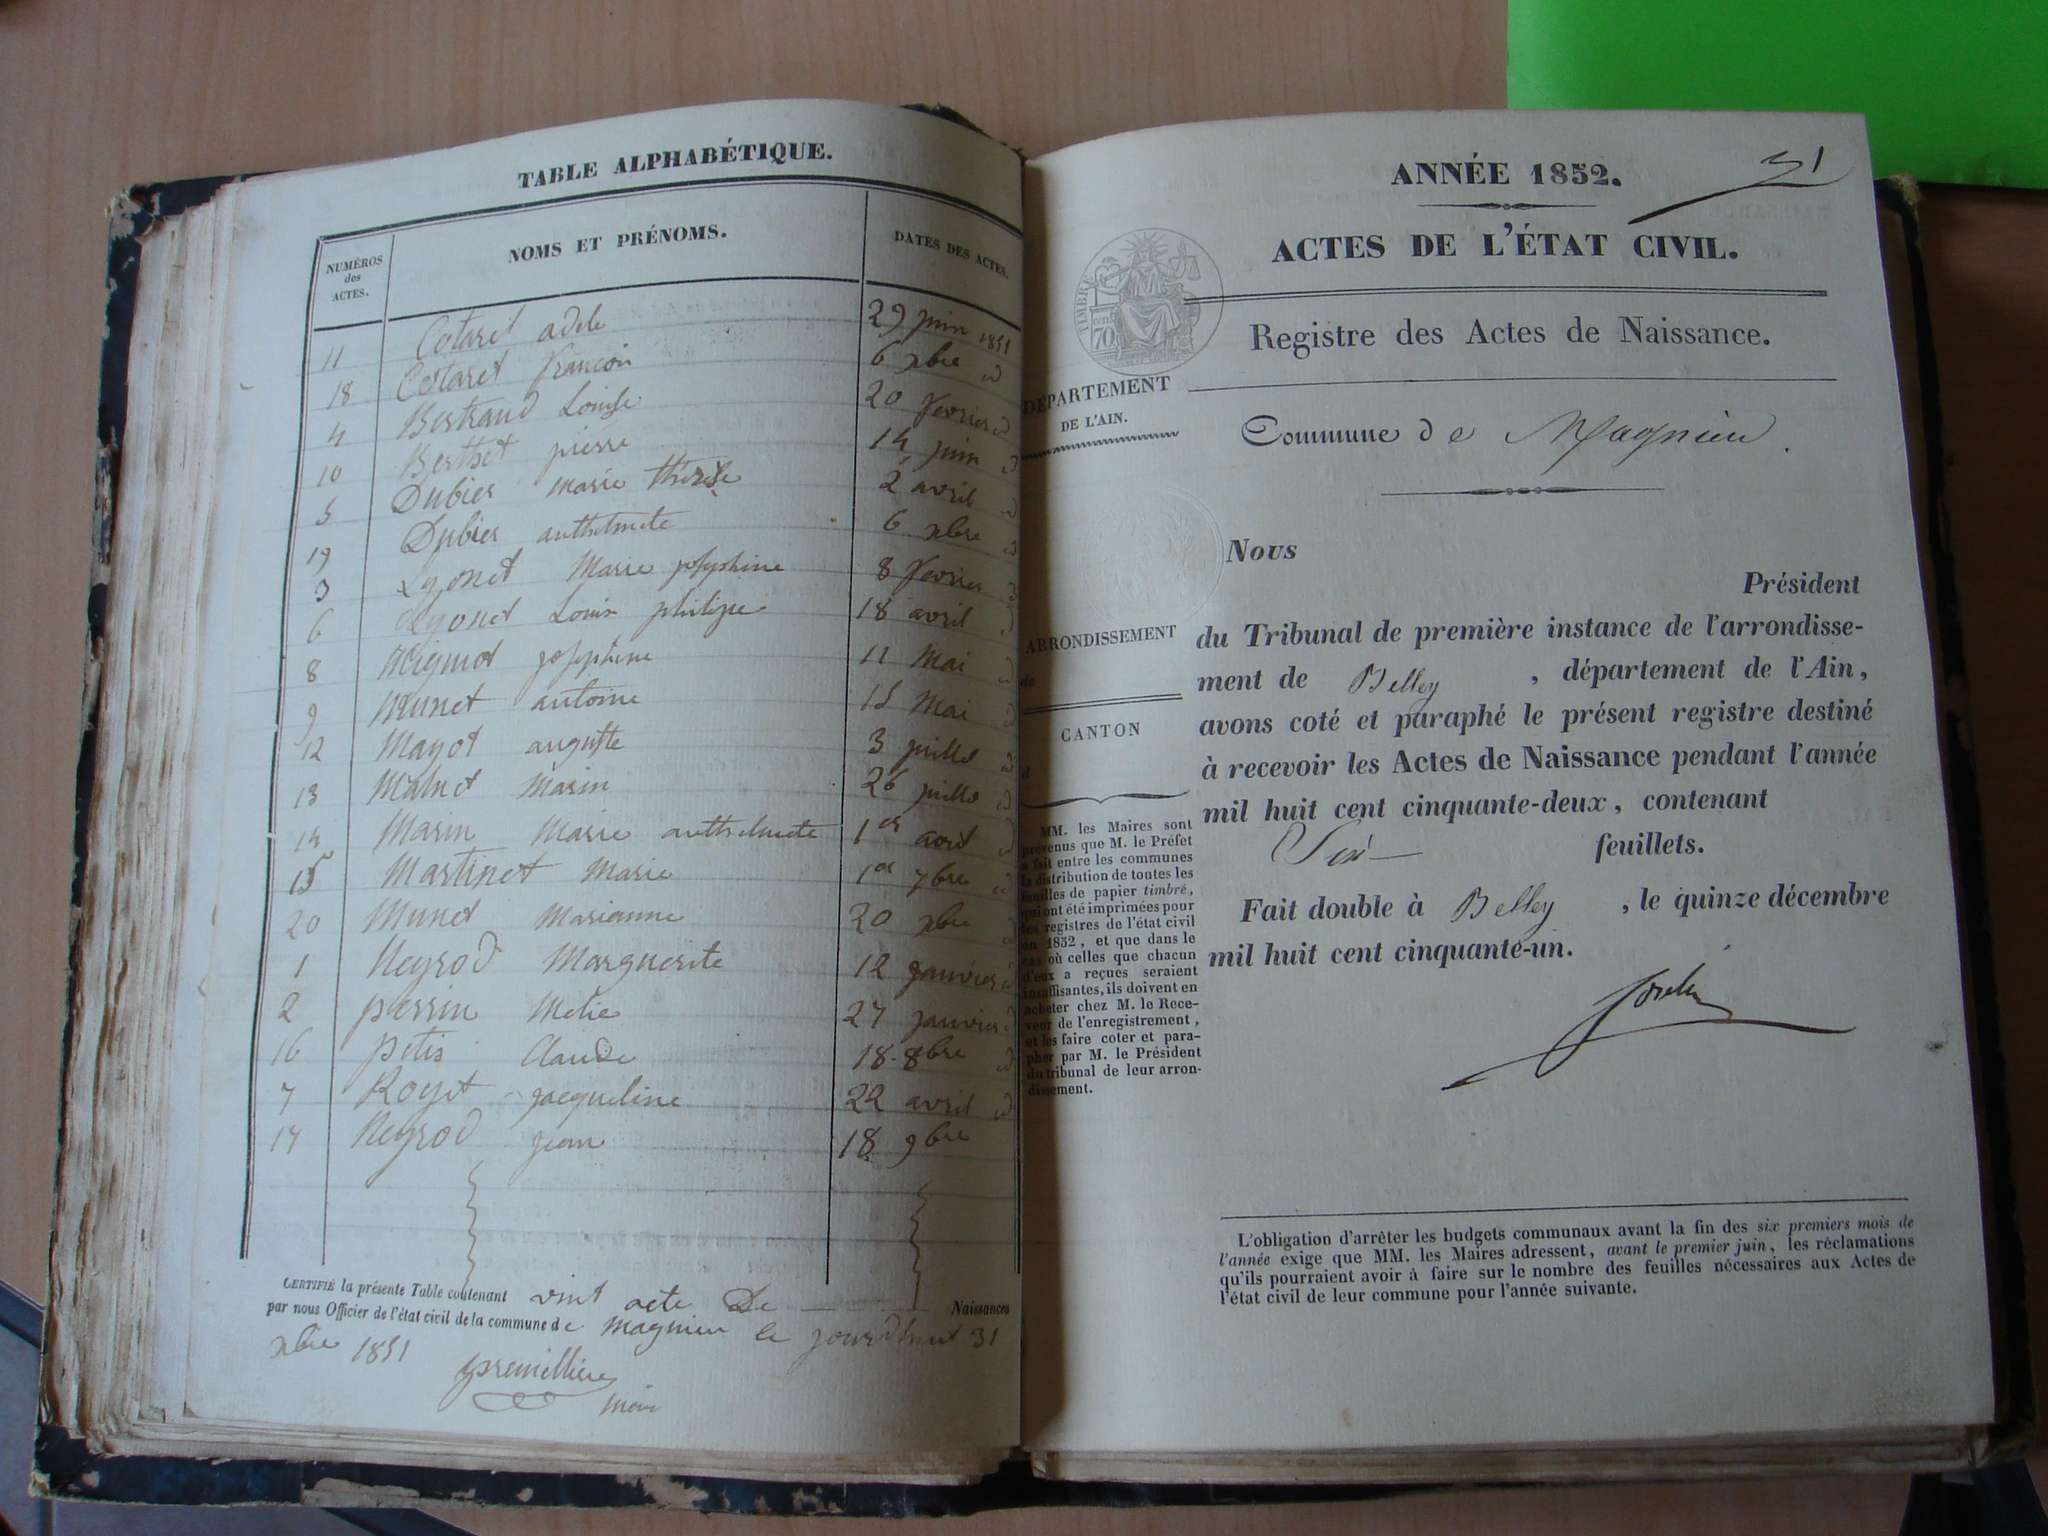 TABLE ALPHABÉTIQUE.
NUMÉROS des ACTES. NOMS ET PRÉNOMS. DATES DES ACTES.
11 Cotaret adele 29 juin 1851
18 Cotaret françois 6 xbre d
4 Bertrand Louise 20 fevrier d
10 Berthet pierre 14 juin d
5 Dubier marie thérèse 2 avril d
19 Dubier anthelmete 6 xbre d
3 Lyonet Marie josephine 8 fevrier d
6 Lyonet Louis philipe 18 avril d
8 josephine 11 Mai d
9 Munet antoine 15 Mai d
12 Mayot auguste 3 juillet d
13 Marin 26 juillet d
14 Marin Marie anthelmete 1er d
15 Martinet Marie 1er 7bre d
20 Munet Marianne 20 xbre d
1 Neyrod Marguerite 12 janvier d
2 perrin Melie 27 janvier d
16 petis Claude 18 8bre d
7 Royet jacqueline 22 avril d
17 Neyrod jean 18 9bre
CERTIFIÉ la présente Table contenant vint acte De Naissances
par nous Officier de l'état civil de la commune de magnieu le jourdhuit 31
xbre 1851
ANNÉE 1852.
ACTES DE L'ÉTAT CIVIL.
TIMBRE
70
Registre des Actes de Naissance.
DÉPARTEMENT
DE L'AIN.
Commune de Magnieu
ARRONDISSEMENT
de
CANTON
d
MM. les Maires sont
prévenus que M. le Préfet
a fait entre les communes
la distribution de toutes les
feuilles de papier timbré,
qui ont été imprimées pour
les registres de l'état civil
en 1852, et que dans le
cas où celles que chacun
d'eux a reçues seraient
insuffisantes, ils doivent en
acheter chez M. le Rece-
veur de l'enregistrement,
et les faire coter et para-
pher par M. le Président
du tribunal de leur arron-
dissement.
Nous
Président
du Tribunal de première instance de l'arrondisse-
ment de Belley, département de l'Ain,
avons coté et paraphé le présent registre destiné
à recevoir les Actes de Naissance pendant l'année
mil huit cent cinquante-deux, contenant
Six feuillets.
Fait double à Belley, le quinze décembre
mil huit cent cinquante-un.
L'obligation d'arrêter les budgets communaux avant la fin des six premiers mois de
l'année exige que MM. les Maires adressent, avant le premier juin, les réclamations
qu'ils pourraient avoir à faire sur le nombre des feuilles nécessaires aux Actes de
l'état civil de leur commune pour l'année suivante.